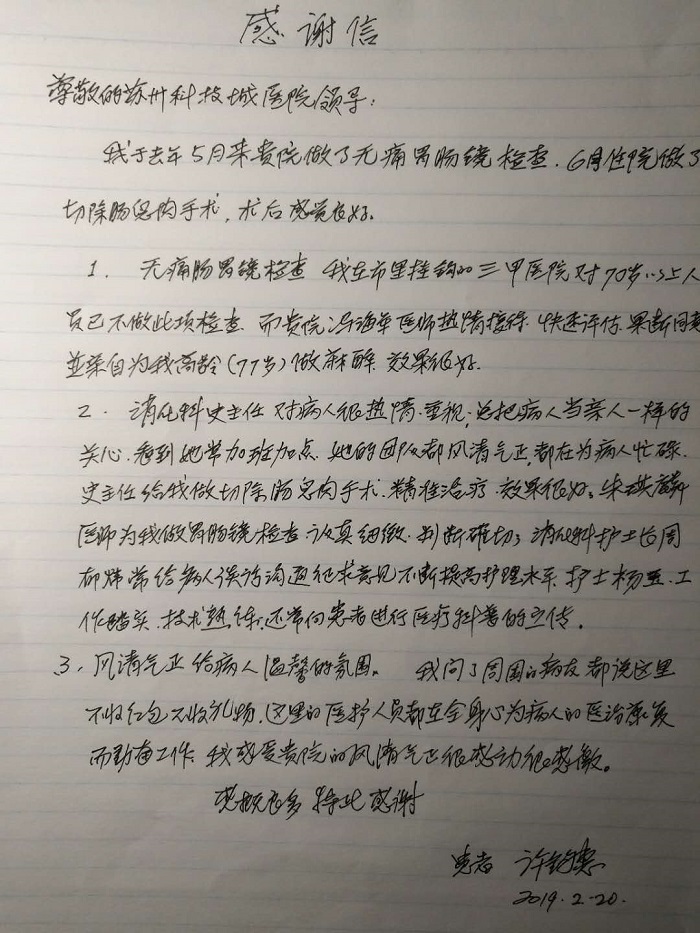 感谢信
尊敬的苏州科技城医院领导：
我于去年5月来贵院做了无痛胃肠镜检查．6月住院做了
切除肠息肉手术，术后感觉良好。
1．无痛肠胃镜检查 我在市里挂钩的三甲医院对70岁以上人
员已不做此项检查．而贵院冯海军医师热情接待．快速评估．果断同意
並亲自为我高龄（77岁）做麻醉．效果很好．
2．消化科史主任 对病人很热情．重视；总把病人当亲人一样的
关心．看到她常加班加点．她的团队都风清气正，都在为病人忙碌．
史主任给我做切除肠息肉手术．精准治疗．效果很好。朱琪麟
医师为我做胃肠镜检查．认真细微．判断确切；消化科护士长周
郁炜常给病人谈话沟通征求意见不断提高护理水平．护士杨 ．工
作踏实．技术熟练．还常向患者进行医疗科普的宣传．
3、风清气正给病人温馨的氛围。我问了周围的病友都说这里
不收红包不收礼物，这里的医护人员都在全身心为病人的医治康复
而勤奋工作．我感受贵院的风清气正很感动很感激。
感概良多 特此感谢
患者 许 惠
2019．2-20．